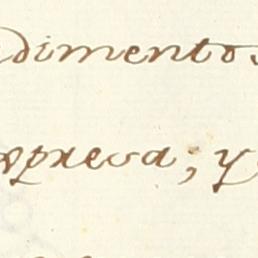 dimentos
xpresa; y